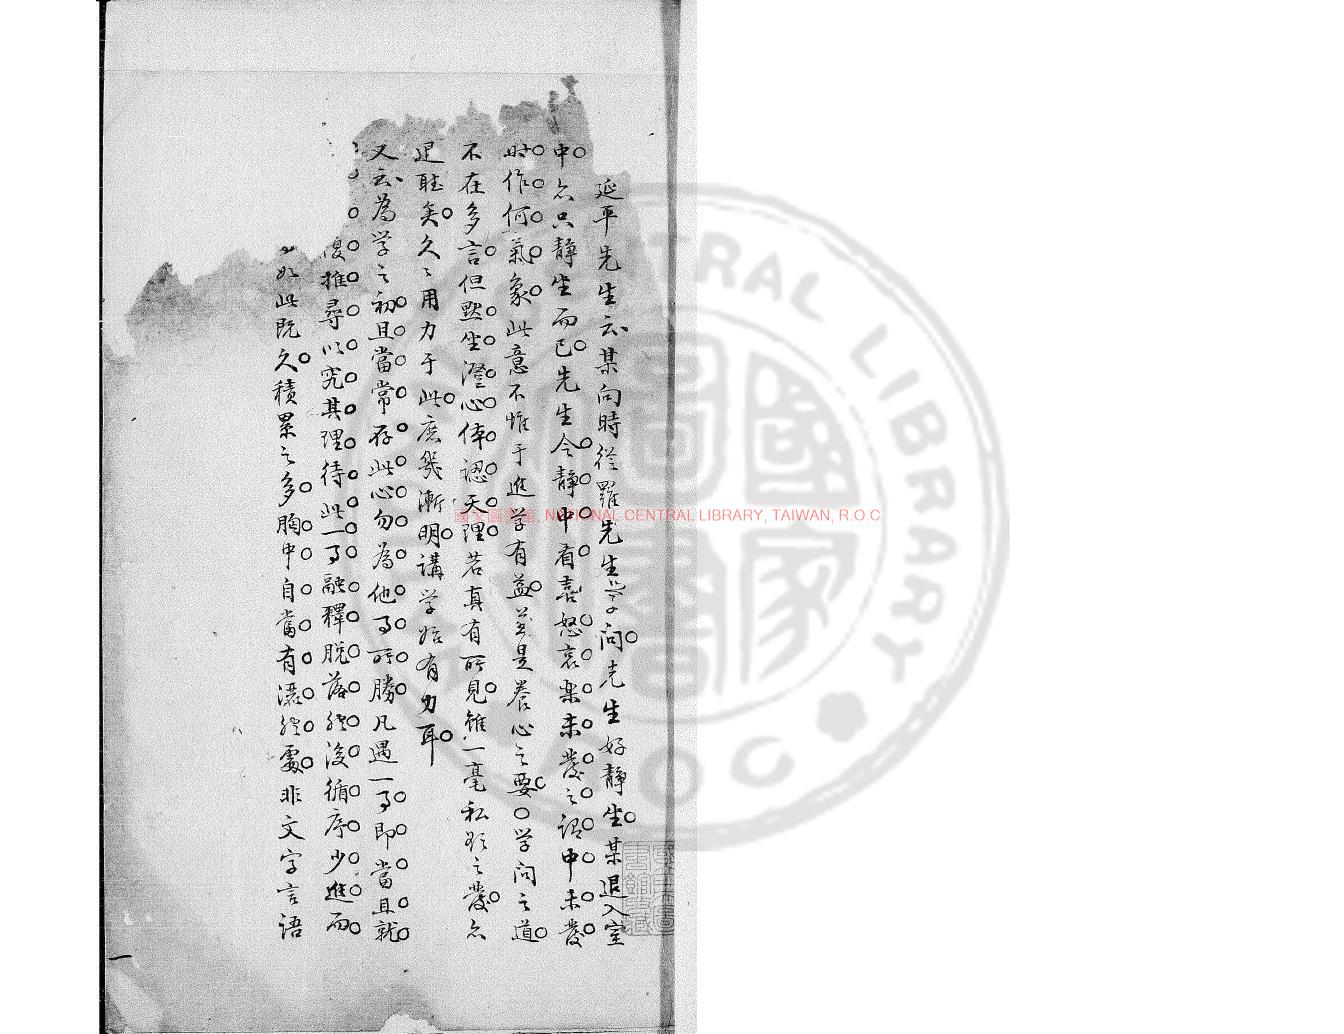 延平先生云某向時從羅先生学问先生好静坐某退入室
中亦只静坐而已先生令静中看喜怒哀楽未發之謂中未發
时作何氣象此意不惟于進学有益並是養心之要○学问之道
不在多言但默坐澄心体認天理若真有所見雖一毫私欲之發亦
退聴矣久〻用力于此庶幾漸明講学始有力耳
又云為学之初且當常存此心勿為他事所勝凡遇一事即當且就
推尋以究其理待此一事融釋脱落然後循序少進而
如此既久積累之多胸中自當有灑然處非文字言語
一
國家圖書館, NATIONAL CENTRAL LIBRARY, TAIWAN, R.O.C.